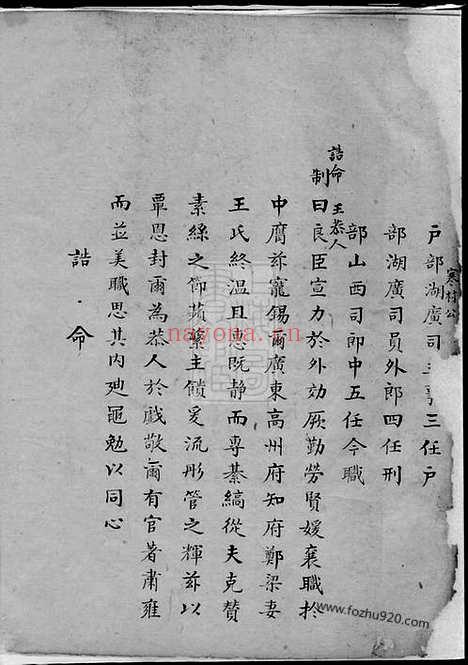 寒村公
戶部湖廣司主事三任戶
部湖廣司員外郎四任刑
部山西司郎中五任今職
誥命 王恭人
制曰良臣宣力於外効厥勤勞賢媛襄職於
中膺玆寵錫爾廣東高州府知府鄭梁妻
王氏終温且惠既静而專綦縞從夫克贊
素絲之節蘋蘩主饋爰流彤管之輝玆以
覃恩封爾為恭人於戲敬爾有官著肅雍
而並美職思其内廸黽勉以同心
誥命
nayona.cn
www.fozhu920.com